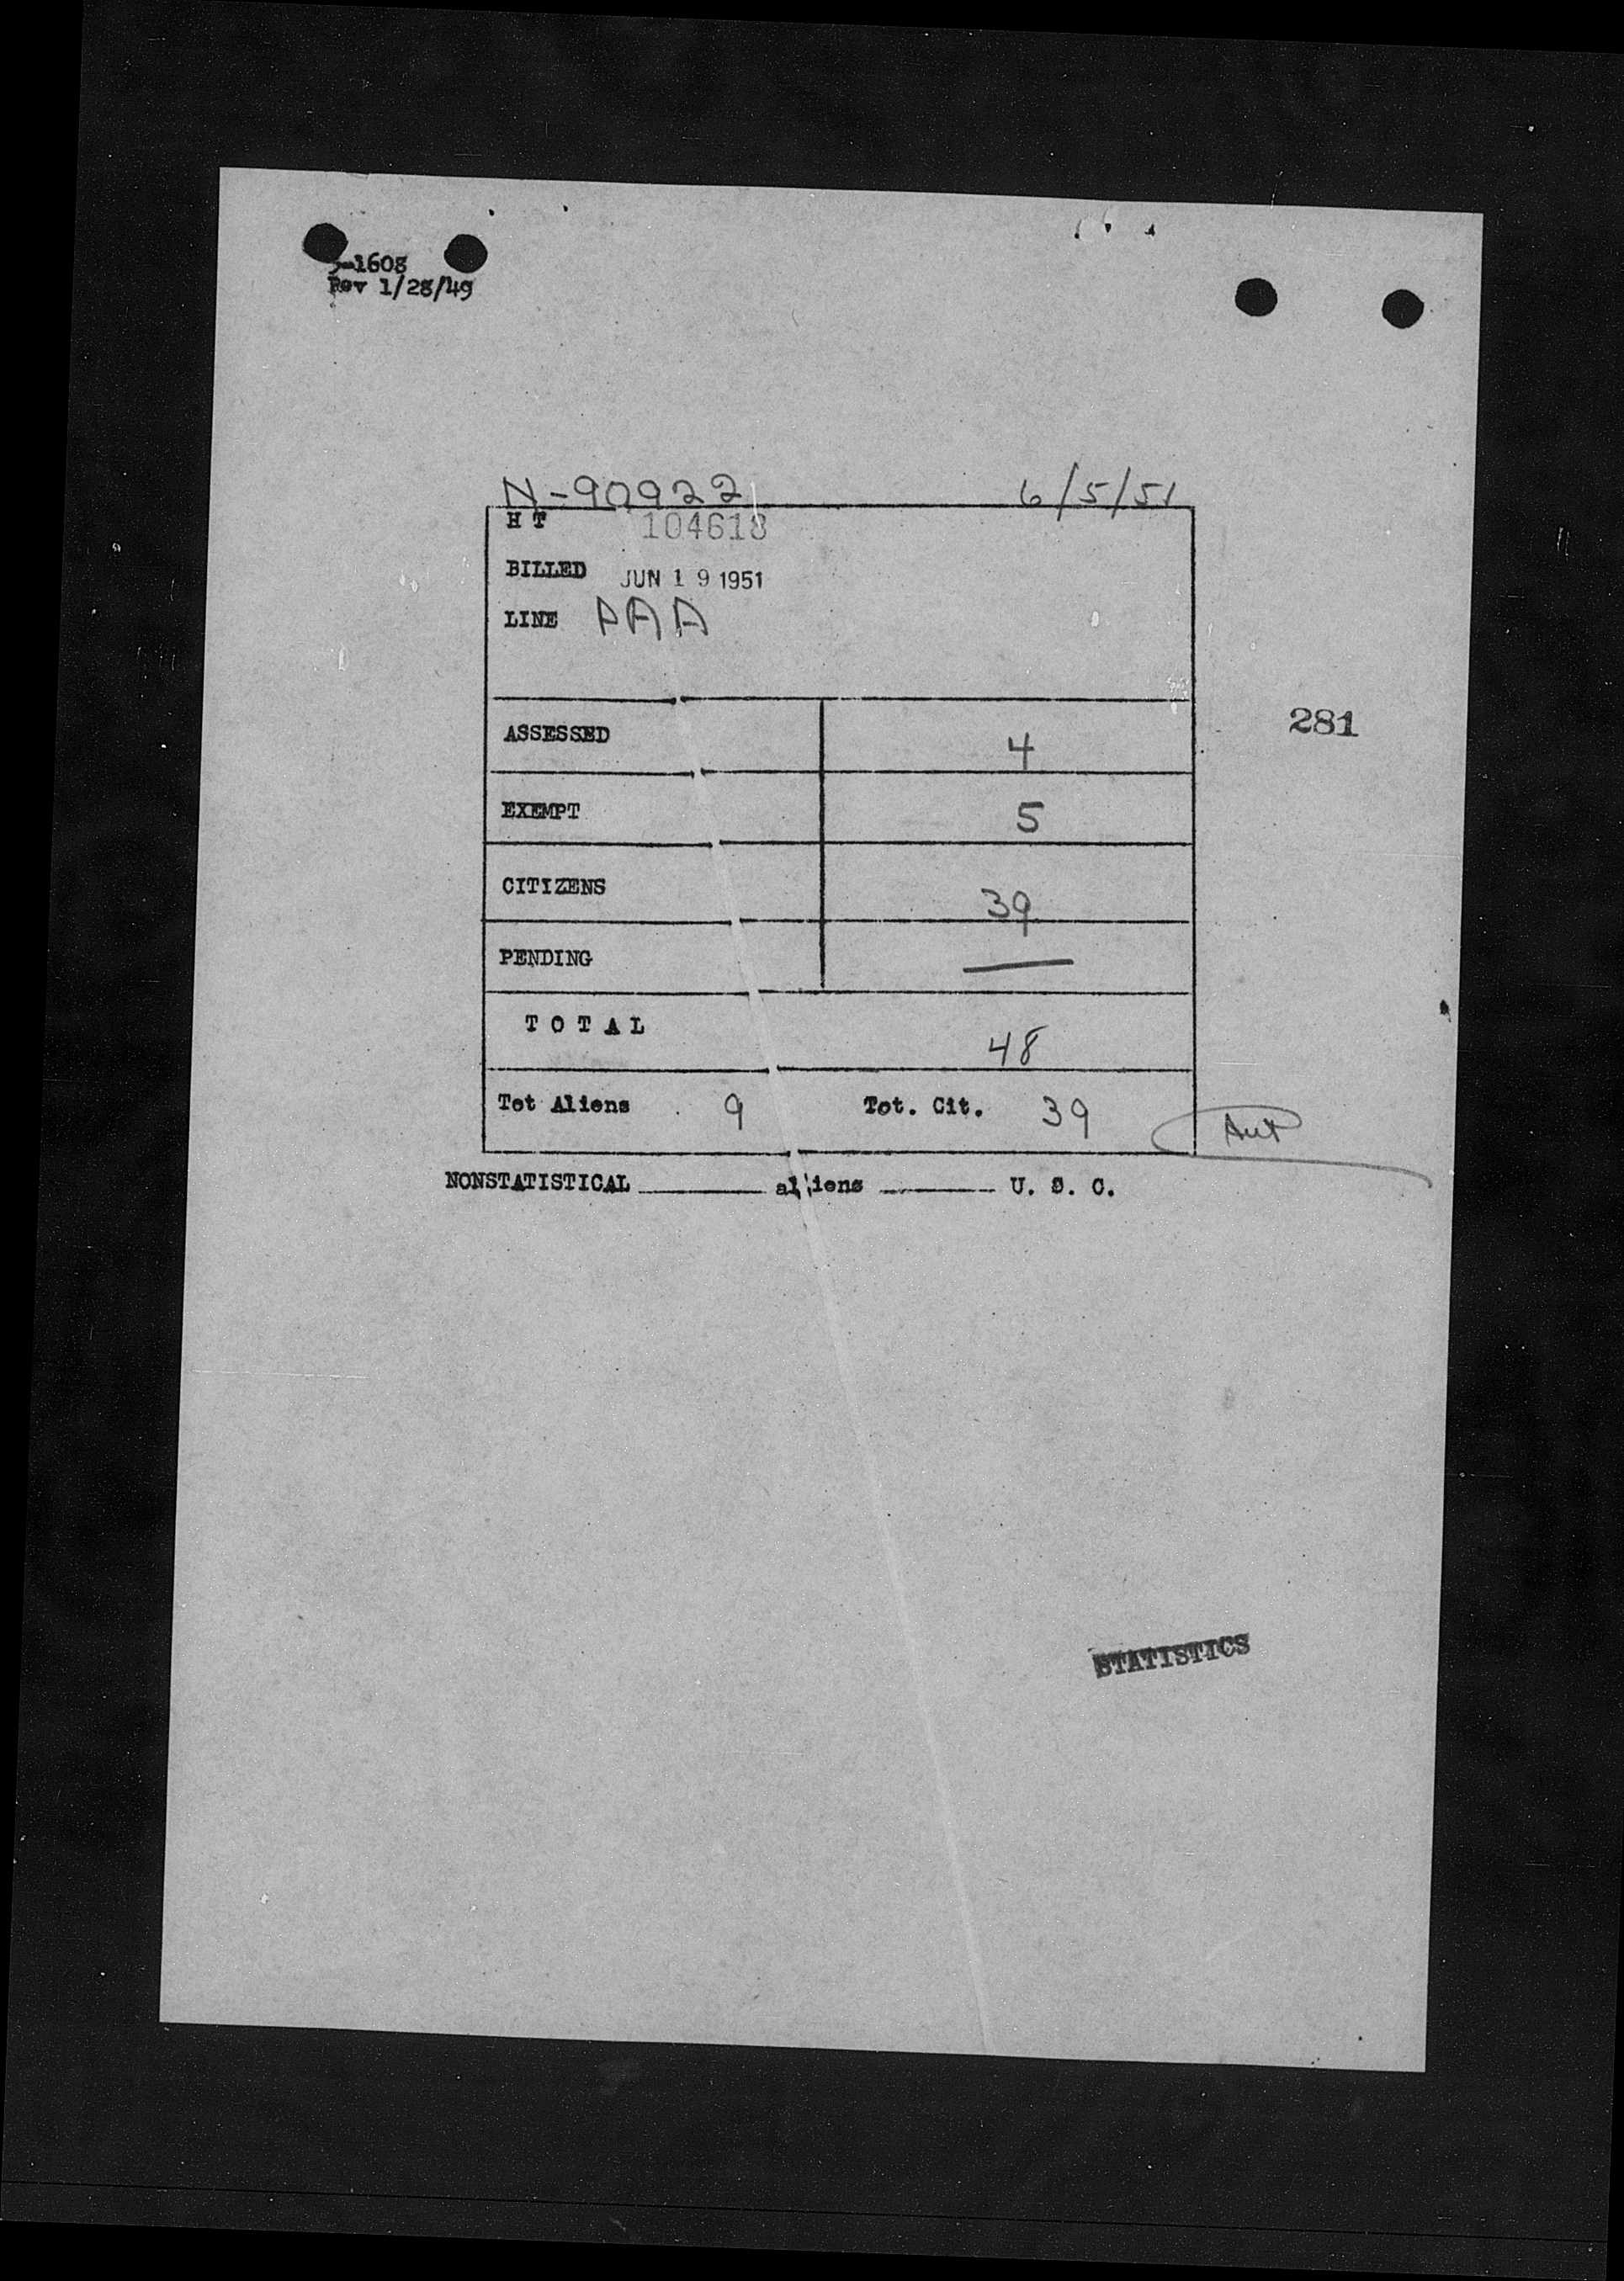 -1608
Rev 1/28/49
N-90922 6/5/51
H T 104618
BILLED JUN 19 1951
LINE PAA
ASSESSED 4
281
EXEMPT 5
CITIZENS 39
PENDING —
T O T A L 48
Tot Aliens 9 Tot. Cit. 39
NONSTATISTICAL ______ aliens ______ U. S. C.
STATISTICS